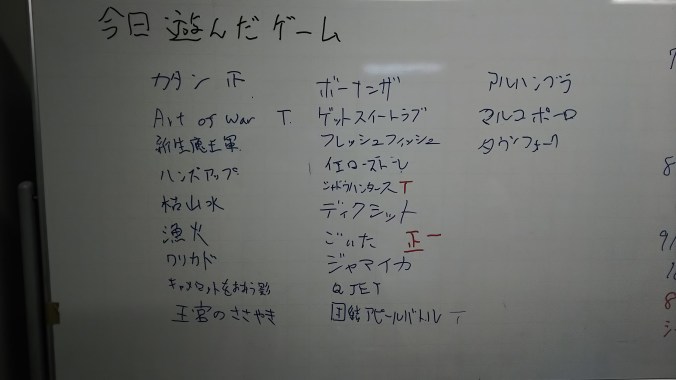 今日遊んだゲーム
カタン 正
Art of War T
新生魔王軍
ハンズアップ
枯山水
漁火
ワリカド
キャメロットをおおう影
王宮のささやき
ボーナンザ
ゲットスイートラブ
フレッシュフィッシュ
イエローストーレ
シャドウハンターズ T
ディクシット
ごいた 正一
ジャマイカ
Q JET
団結アピールバトル T
アルハンブラ
マルコポーロ
7
8
9/
8